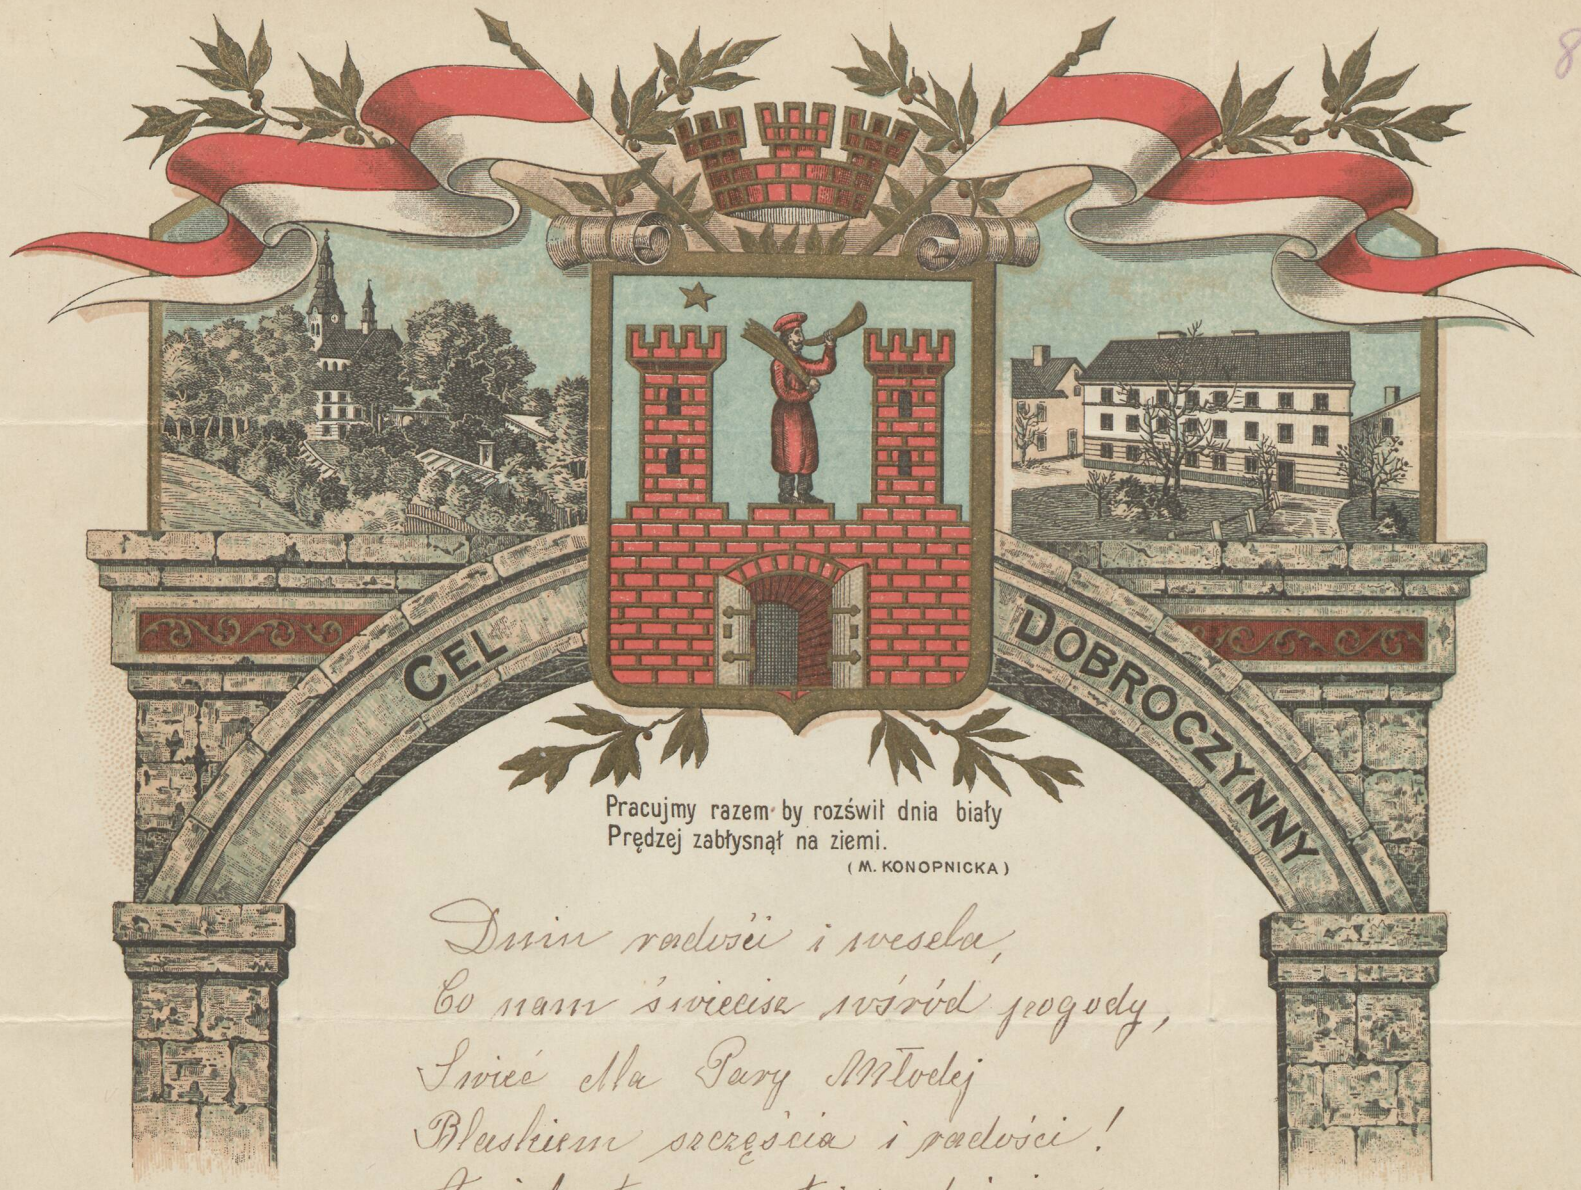 CEL DOBROCZYNNY
Pracujmy razem by rozświt dnia biały
Prędzej zabłysnął na ziemi.
(M. KONOPNICKA)
Dniu radości i wesela,
Co nam świecisz wśród pogody,
Swieć dla Pary Młodej
Blaskiem szczęścia i radości!
8